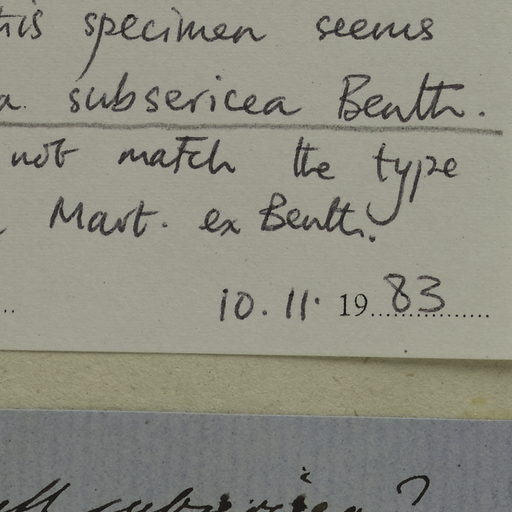 his specimen seems
a. subsericea Benth.
not match the type
Mart. ex Benth.
10.11. 1983
subsericea?